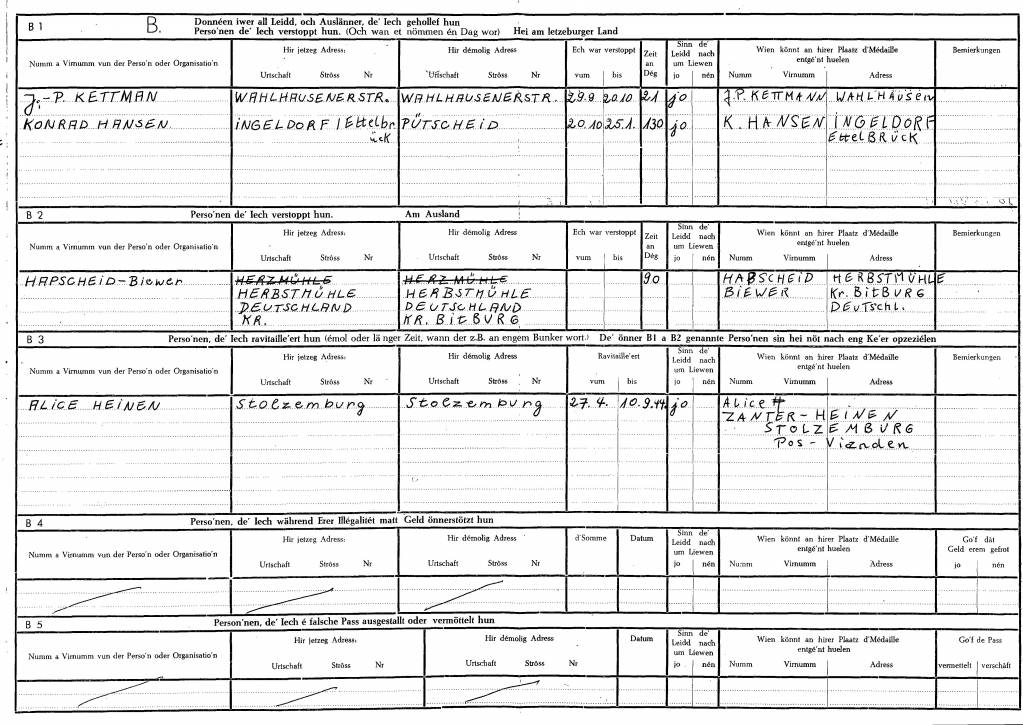 B 1 B. Donnéen iwer all Leidd, och Auslänner, de' Iech gehollef hun
Perso'nen de' Iech verstoppt hun. (Och wan et nömmen én Dag wor) Hei am letzeburger Land
Numm a Virnumm vun der Perso'n oder Organisatio'n
Hir jetzeg Adress:
Urtschaft Ströss Nr
Hir démolig Adress
Urtschaft Ströss Nr
Ech war verstoppt
vum bis
Zeit
an
Dég
Sinn de'
Leidd nach
um Liewen
jo nén
Wien könnt an hirer Plaatz d'Médaille
entgé'nt huelen
Numm Virnumm Adress
Bemierkungen
J.-P. KETTMAN WAHLHAUSENERSTR. WAHLHAUSENERSTR. 29.9 20.10 21 jo J.P. KETTMANN WAHLHAUSEN
KONRAD HANSEN INGELDORF / Ettelbr PÜTSCHEID 20.10 25.1. 130 jo K. HANSEN INGELDORF
ück ETTELBRÜCK
B 2 Perso'nen de' Iech verstoppt hun. Am Ausland
Numm a Virnumm vun der Perso'n oder Organisatio'n
Hir jetzeg Adress:
Urtschaft Ströss Nr
Hir démolig Adress
Urtschaft Ströss Nr
Ech war verstoppt
vum bis
Zeit
an
Dég
Sinn de'
Leidd nach
um Liewen
jo nén
Wien könnt an hirer Plaatz d'Médaille
entgé'nt huelen
Numm Virnumm Adress
Bemierkungen
HAPSCHEID-Biewer HERZMÜHLE HERZMÜHLE 90 HABSCHEID HERBSTMÜHLE
HERBSTMÜHLE HERBSTMÜHLE BIEWER Kr. BITBURG
DEUTSCHLAND DEUTSCHLAND DEUTSCHL.
KR. KR. BITBURG
B 3 Perso'nen, de' Iech ravitaille'ert hun (émol oder länger Zeit, wann der z.B. an engem Bunker wort.) De' önner B1 a B2 genannte Perso'nen sin hei nöt nach eng Ke'er opzeziélen
Numm a Virnumm vun der Perso'n oder Organisatio'n
Hir jetzeg Adress:
Urtschaft Ströss Nr
Hir démolig Adress
Urtschaft Ströss Nr
Ravitaille'ert
vum bis
Sinn de'
Leidd nach
um Liewen
jo nén
Wien könnt an hirer Plaatz d'Médaille
entgé'nt huelen
Numm Virnumm Adress
Bemierkungen
ALICE HEINEN Stolzemburg Stolzemburg 27.4. 10.9.44. jo Alice
ZANTER-HEINEN
STOLZEMBURG
Pos - Vianden
B 4 Perso'nen, de' Iech während Erer Illégalitét matt Geld önnerstötzt hun
Numm a Virnumm vun der Perso'n oder Organisatio'n
Hir jetzeg Adress:
Urtschaft Ströss Nr
Hir démolig Adress
Urtschaft Ströss Nr
d'Somme
Datum
Sinn de'
Leidd nach
um Liewen
jo nén
Wien könnt an hirer Plaatz d'Médaille
entgé'nt huelen
Numm Virnumm Adress
Go'f dât
Geld erem gefrot
jo nén
B 5 Person'nen, de' Iech é falsche Pass ausgestallt oder vermöttelt hun
Numm a Virnumm vun der Perso'n oder Organisatio'n
Hir jetzeg Adress:
Urtschaft Ströss Nr
Hir démolig Adress
Urtschaft Ströss Nr
Datum
Sinn de'
Leidd nach
um Liewen
jo nén
Wien könnt an hirer Plaatz d'Médaille
entgé'nt huelen
Numm Virnumm Adress
Go'f de Pass
vermettelt verschäft